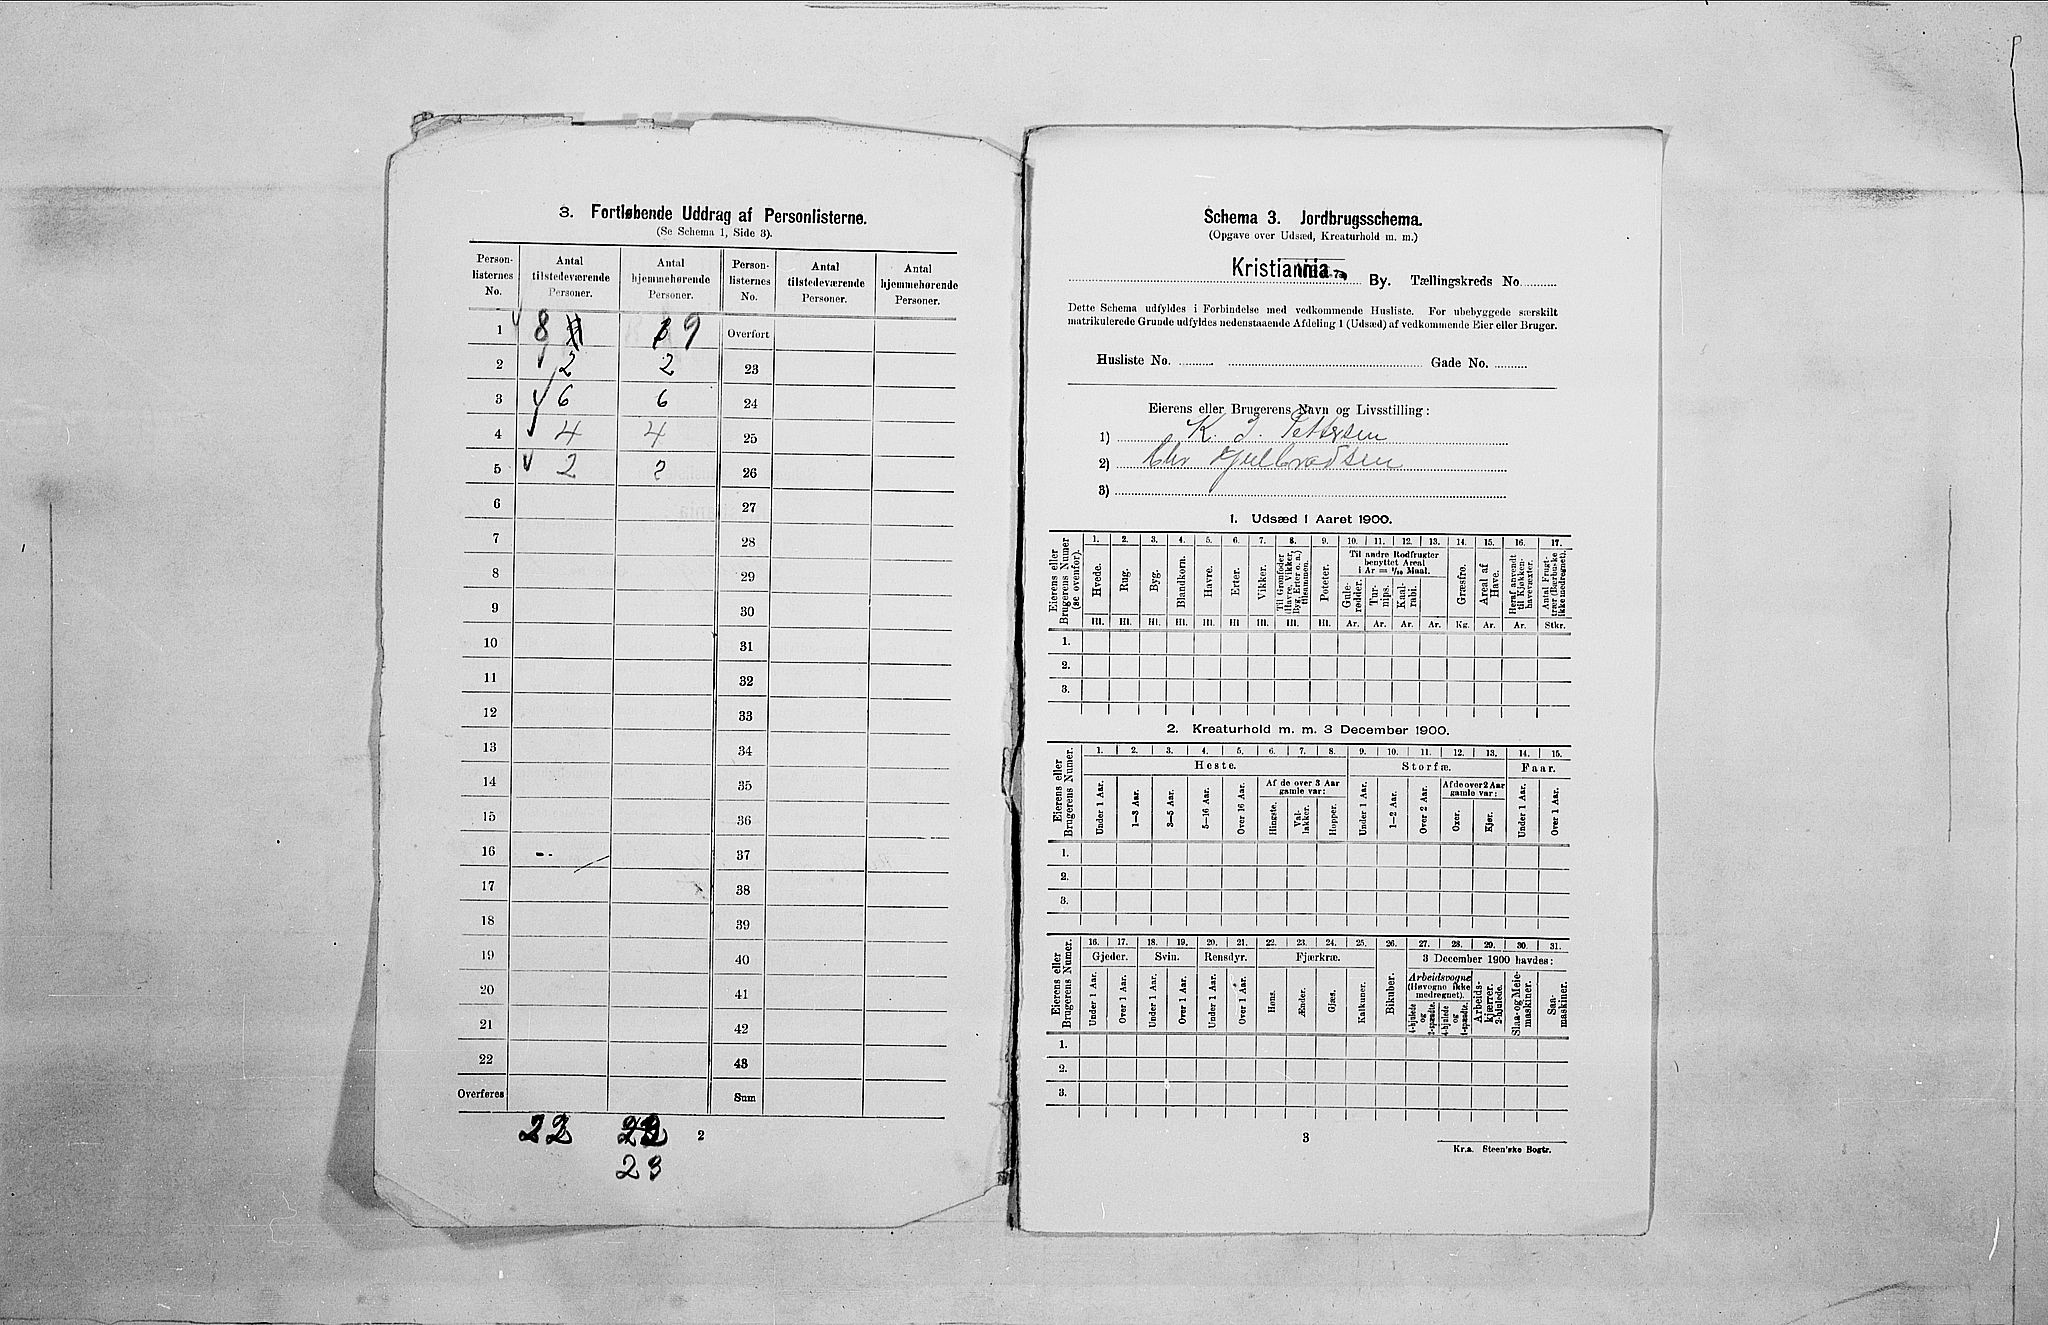 3. Fortløbende Uddrag af Personlisterne.
(Se Schema 1, Side 3).
Person-listernes No. Antal tilstedeværende Personer. Antal hjemmehørende Personer. Person-listernes No. Antal tilstedeværende Personer. Antal hjemmehørende Personer.
1 8 9 Overført
2 2 2 23
3 6 6 24
4 4 4 25
5 2 2 26
6 27
7 28
8 29
9 30
10 31
11 32
12 33
13 34
14 35
15 36
16 37
17 38
18 39
19 40
20 41
21 42
22 43
Overføres Sum
22
23
2
Schema 3. Jordbrugsschema.
(Opgave over Udsæd, Kreaturhold m. m.)
Kristiania By. Tællingskreds No.
Dette Schema udfyldes i Forbindelse med vedkommende Husliste. For ubebyggede særskilt
matrikulerede Grunde udfyldes nedenstaaende Afdeling 1 (Udsæd) af vedkommende Eier eller Bruger.
Husliste No. Gade No.
Eierens eller Brugerens Navn og Livsstilling:
1) K. J. Pettersen
2) Chr
3)
1. Udsæd i Aaret 1900.
Eierens eller Brugerens Numer (se ovenfor).
1. 2. 3. 4. 5. 6. 7. 8. 9. 10. 11. 12. 13. 14. 15. 16. 17.
Hvede. Rug. Byg. Blandkorn. Havre. Erter. Vikker. Til Grønfoder Havre, Vikker, Byg, Erter o. a.) tilsammen. Poteter.
Til andre Rodfrugter benyttet Areal i Ar = 1/10 Maal.
Gule-rødder. Tur-nips. Kaal-rabi. Græsfrø. Areal af Have. Heraf anvendt til Kjøkken-havevæxter. Antal Frugt-trær (Bærbuske ikke medregnet).
Hl. Hl. Hl. Hl. Hl. Hl Hl. Hl. Hl. Ar. Ar. Ar. Ar. Kg. Ar. Ar. Stkr.
1.
2.
3.
2. Kreaturhold m. m. 3 December 1900.
Eierens eller Brugerens Numer.
1. 2. 3. 4. 5. 6. 7. 8. 9. 10. 11. 12. 13. 14. 15.
Heste. Storfæ. Faar.
Af de over 3 Aar gamle var: Af de over 2 Aar gamle var:
Under 1 Aar. 1—3 Aar. 3—5 Aar. 5—16 Aar. Over 16 Aar. Hingste. Val-lakker. Hopper. Under 1 Aar. 1—2 Aar. Over 2 Aar. Oxer. Kjør. Under 1 Aar. Over 1 Aar.
1.
2.
3.
Eierens eller Brugerens Numer.
16. 17. 18. 19. 20. 21. 22. 23. 24. 25. 26. 27. 28. 29. 30. 31.
Gjeder. Svin. Rensdyr. Fjærkræ. 3 December 1900 havdes:
Under 1 Aar. Over 1 Aar. Under 1 Aar. Over 1 Aar. Under 1 Aar. Over 1 Aar. Høns. Ænder. Gjæs. Kalkuner. Bikuber.
Arbeidsvogne (Høvogne ikke medregnet).
4-hjulede og 2-spændte. 4-hjulede og 1-spændte. Arbeids-kjærrer. 2-hjulede. Slaa- og Meie-maskiner. Saa-maskiner.
1.
2.
3.
3
Kr.a. Steen'ske Bogtr.